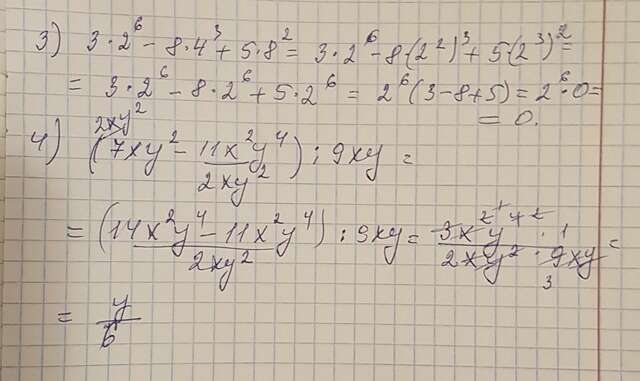 3) 3·2⁶ − 8·4³ + 5·8² = 3·2⁶ − 8·(2²)³ + 5(2³)² =
= 3·2⁶ − 8·2⁶ + 5·2⁶ = 2⁶(3−8+5) = 2⁶·0 =
= 0.
2xy²
4) (7xy² − 11x²y⁴/2xy²) : 9xy =
= (14x²y⁴ − 11x²y⁴/2xy²) : 9xy = 3x²y⁴ · 1/2xy² · 9xy =
3
= y/6